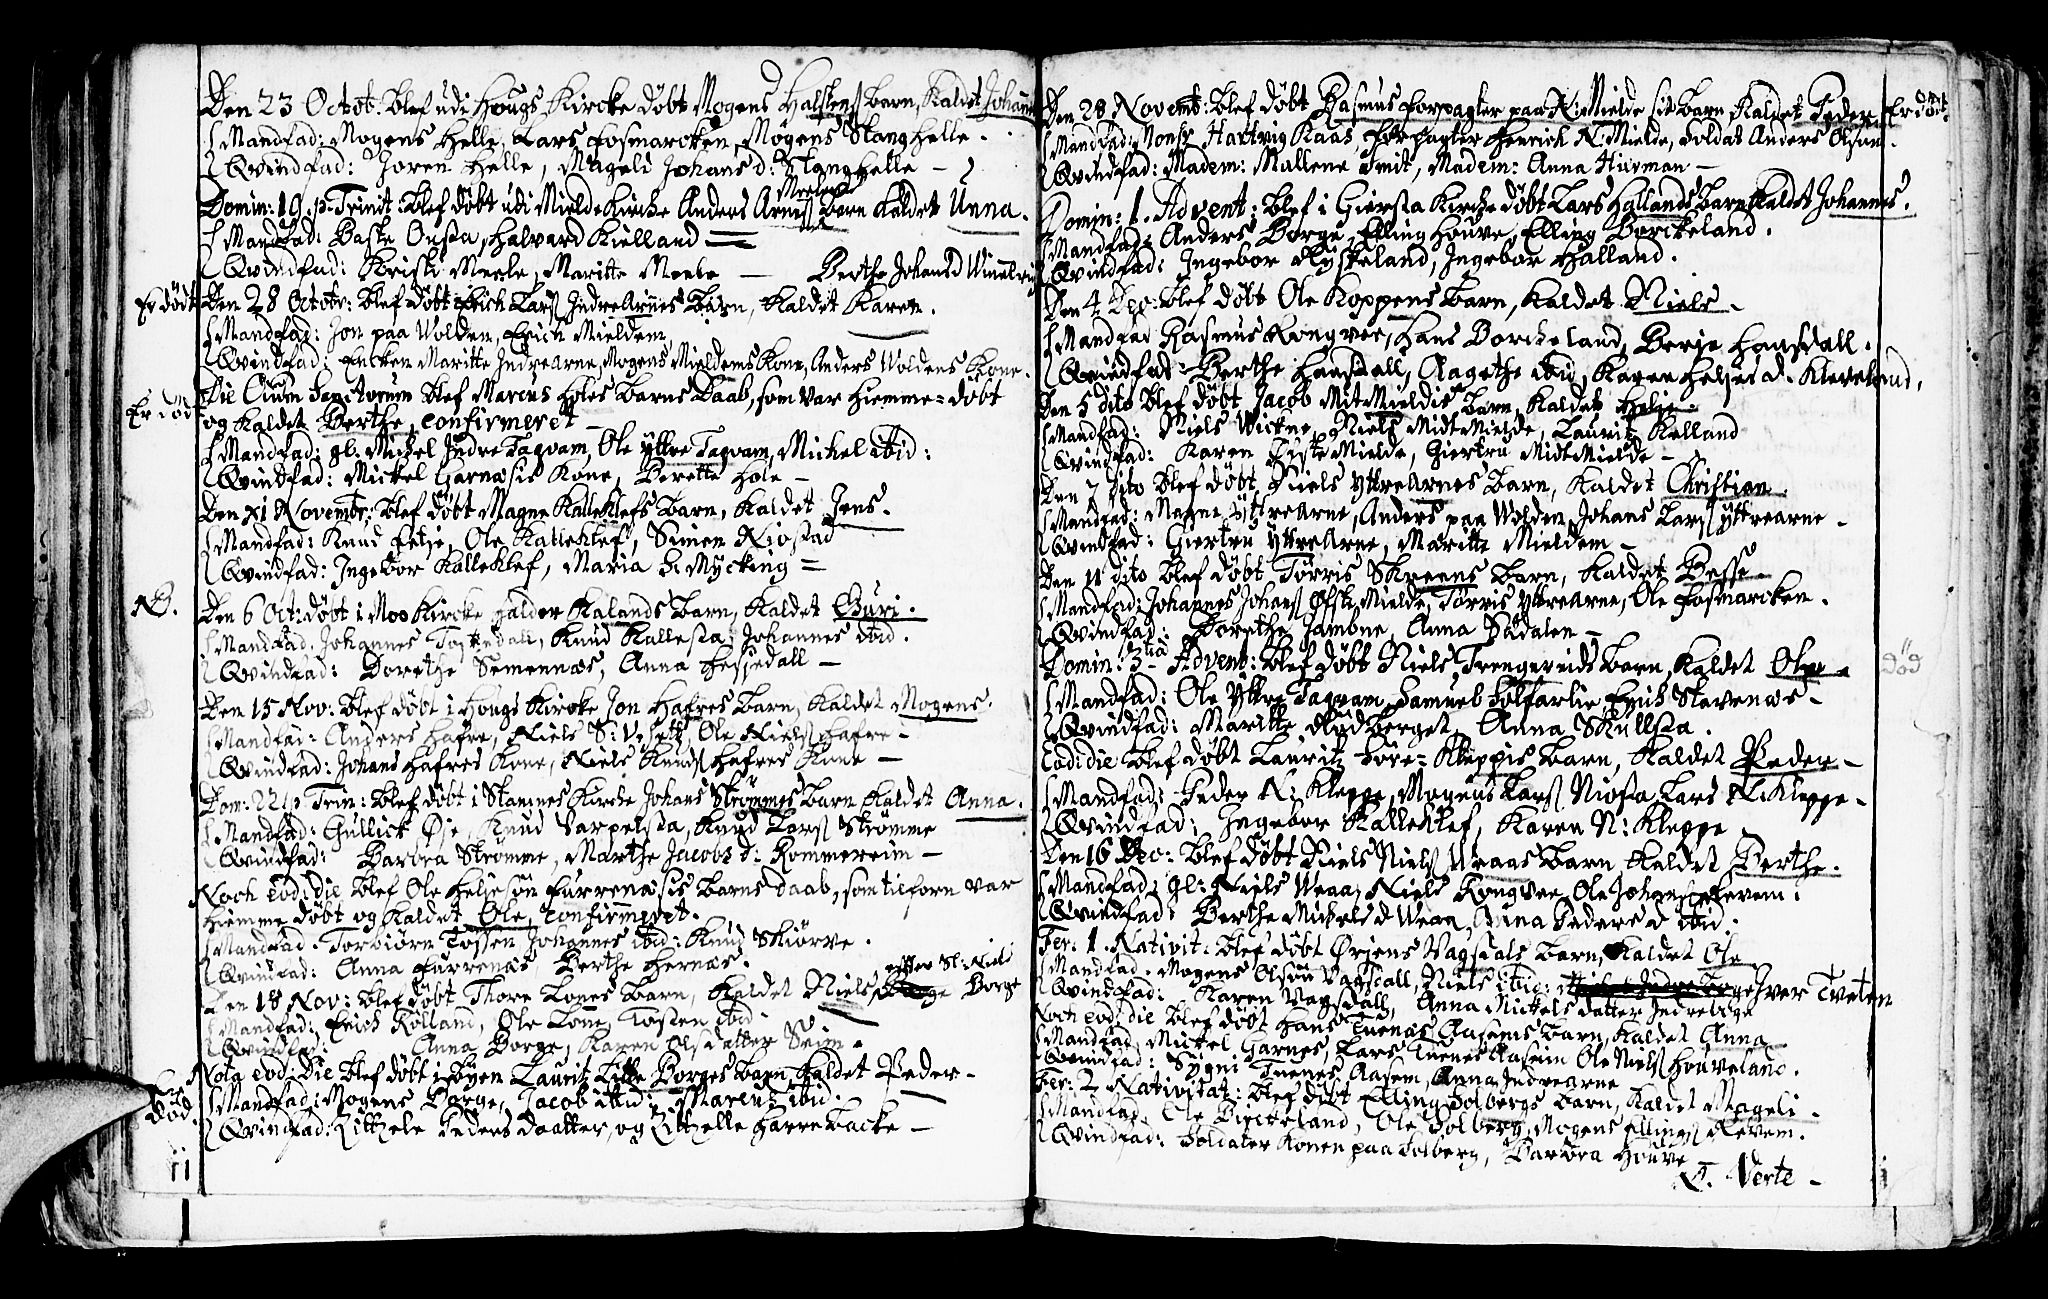 Den 23 Octob: blef udi Hougs Kircke døbt Mogens Halstens barn, Kaldet Johannes
Mandfad: Mogens Helle, Lars Fosmarcken, Mogens Stanghelle.
Qvindfad: Joren Helle, Mageli Johans d: Stanghelle —
Domin: 19 p: Trinit: blef døbt udi Mielde Kircke Anders Arnis barn Kaldet Unna.
Mandfad: Baste Onsta, Halvard Kielland
Qvindfad: Kristi Meele, Maritte Meele — Berthe Johansd
Er død Den 28 Octobr: blef døbt Erich Larss Indre Arnes barn, Kaldet Karen.
Mandfad: Jon paa Wolden, Erich Mieldem
Qvindfad: Encken Maritte Indrearne, Mogens Mieldems Kone, Anders Woldens Kone.
Er død Die blef Marcus Holes barns Daab, som var hiemme-døbt
og Kaldet Berthe, confirmeret —
Mandfad: gl: Mickel Indre Tagvam, Ole Yttre Tagvam, Michel ibid:
Qvindfad: Mickel Garnæsis Kone, Berette Hole —
Den 11 Novembr: blef døbt Magne Kalleklefs barn, Kaldet Jens.
Mandfad: Knud Fetje, Ole Kalleklef, Simen Niostad
Qvindfad: Ingebor Kalleklef, Maria S. Mycking =
NB. Den 6 Oct: døbt i Moo Kircke Halder Kalands barn, Kaldet Guri.
Mandfad: Johannes Toskedall, Knud Kallesta, Johannes ibid.
Qvindfad: Dorethe Semennæs, Anna Hessedall —
Den 15 Nov: blef døbt i Hougs Kircke Jon Hafres barn, Kaldet Mogens.
Mandfad: Anders Hafre, Niels S: Veseth, Ole Nielss Hafre —
Qvindfad: Johans Hafres Kone, Niels Knudss Hafres Kone —
Dom: 22 p Trin: blef døbt i Stamnes Kircke Johans Strømmes barn Kaldet Anna.
Mandfad: Gullick Øje, Knud Varpelsta, Knud Larss Strømme
Qvindfad: Barbra Strømme, Marthe Jacobs d: Rommereim —
Noch eod: die blef Ole Heljesøn Furrenæsis barns daab, som tilforn var
hiemme døbt og Kaldet Ole, confirmeret.
Mandfad. Torbiørn Tossen Johannes ibid: Knud Skiørve.
Qvindfad: Anna Furrenæs, Berthe Hernæs.
Den 18 Nov: blef døbt Thore Lones barn, Kaldet Niels efter Sl: Niels Borge
Mandfad: Erich Rølland, Ole Lone, Tosten ibid.
Qvindfad: Anna Borge, Karen Olsdatter Seim.
Nota eod: Die blef døbt i byen Lauritz Lille Borges barn Kaldet Peder —
Død Mandfad: Mogens Borge, Jacob ibid: Marentz ibid.
Qvindfad: Zitzele Peders daatter, og Zitzelle Harrebacke —
Den 28 Novemb: blef døbt Rasmus Forpagter paa N: Mielde sit barn Kaldet Peder. Er død.
Mandfad: Monsr Hartvig Kaas, Forpagter Henrich N. Mielde, Soldat Anders Olsøn.
Qvindfad: Madem: Mallene Smit, Madem: Anna Hurman —
Domin: 1. Advent: blef i Giersta Kircke døbt Lars Hallands barn Kaldet Johannes.
Mandfad: Anders Borge, Elling Houve, Elling Borckeland.
Qvindfad: Ingebor Ryskeland, Ingebor Halland.
Den 4 Dec: blef døbt Ole Koppens barn, Kaldet Niels.
Mandfad Rasmus Rongvee, Hans Borckeland, Berje Haugdall.
Qvindfad: Berthe Haugdall, Aagethe ibid, Karen Heljes d. Kleveland.
Den 5 dito blef døbt Jacob Mit Mieldis barn, Kaldet Helje —
Mandfad: Niels Wickne, Niels Midt Mielde, Lauritz Kelland
Qvindfad: Karen Øfste Mielde, Giertru Midt Mielde —
Den 7 dito blef døbt Niels Yttrearnes barn, Kaldet Christian.
Mandfad: Magne Yttrearne, Anders paa Wolden, Johans Larss Yttrearne —
Qvindfad: Giertru Yttrearne, Maritte Mieldem —
Den 11 dito blef døbt Tørris Skreens barn, Kaldet Besse.
Mandfad: Johannes Johanss Øfste Mielde, Tørris Yttrearne, Ole Fosmarcken.
Qvindfad: Dorethe Jambne, Anna Sædalen —
Domin: 3tia Advent: blef døbt Niels Trengereids barn, Kaldet Ole. Død
Mandfad: Ole Yttre Tagvam, Samuel Solfarlie, Erich Stavenæs —
Qvindfad: Maritte Rødberget, Anna Skullsta.
Eodidie blef døbt Lauritz Søre-Kleppis barn, Kaldet Peder —
Mandfad: Peder N: Kleppe, Mogens Larss Niosta Lars N: Kleppe —
Qvindfad: Ingebor Kalleklef, Karen N: Kleppe
Den 16 Dec: blef døbt Niels Nielss Wraas barn Kaldet Berthe.
Mandfad: gl: Niels Wraa, Niels Rongvee, Ole Johanss Revem.
Qvindfad: Berthe Michels d Wraa, Anna Peders d ibid.
Fer: 1. Nativit: blef døbt Ørjens Vagsdals barn, Kaldet Ole
Mandfad. Mogens Olsøn Vagsdall, Niels ibid: Iver Tveten
Qvindfad: Karen Vagsdall, Anna Mickels datter Indreboge
Noch eod: die blef døbt Hans Tuenæs Aasems barn, Kaldet Anna
Mandfad Mickel Garnes, Lars Tuenes Aasem Ole Nielss Houveland.
Qvindfad: Sygni Tuenes Aasem, Anna Indrearne
Fer: 2 Nativitat: blef døbt Elling Solbergs barn, Kaldet Mageli.
Mandfad. Ole Birckeland, Ole Solberg, Mogens Ellings Revem.
Qvindfad: Soldater Konen paa Solberg, Barbra Houve
V. Verte —